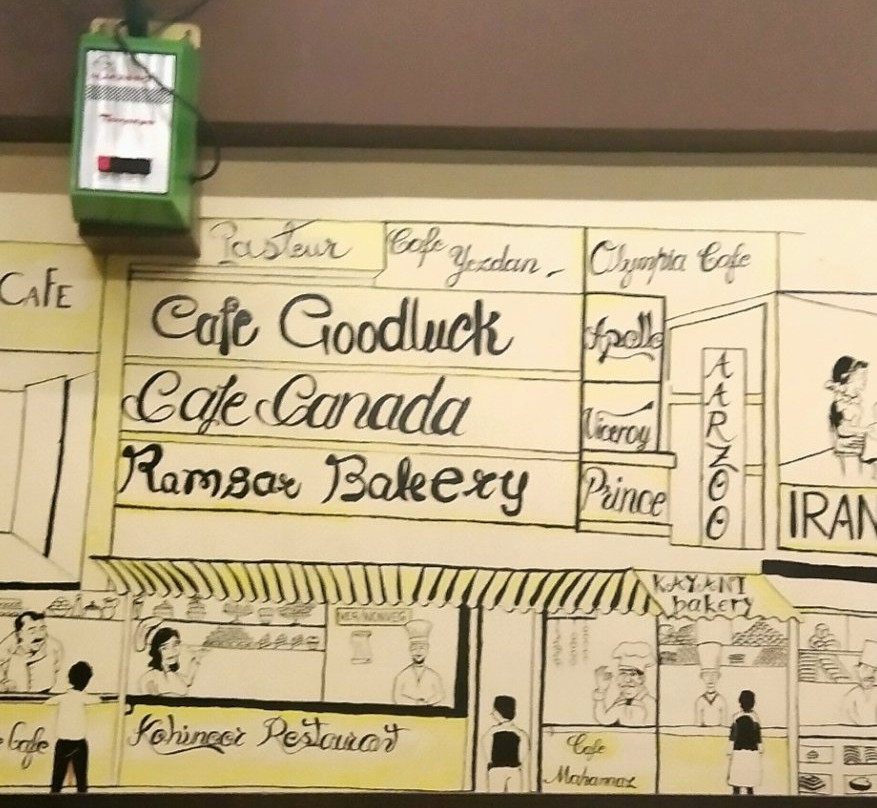 Pasteur
Cafe Yezdan
Olympia Cafe
CAFE
Cafe Goodluck
Apollo
Cafe Canada
Viceroy
Ramsar Bakeery
Prince
AARZOO
IRAN
KAYANI
bakery
VEG/NONVEG
Kohinoor Restaurat
Cafe
Cafe
Mahamaz